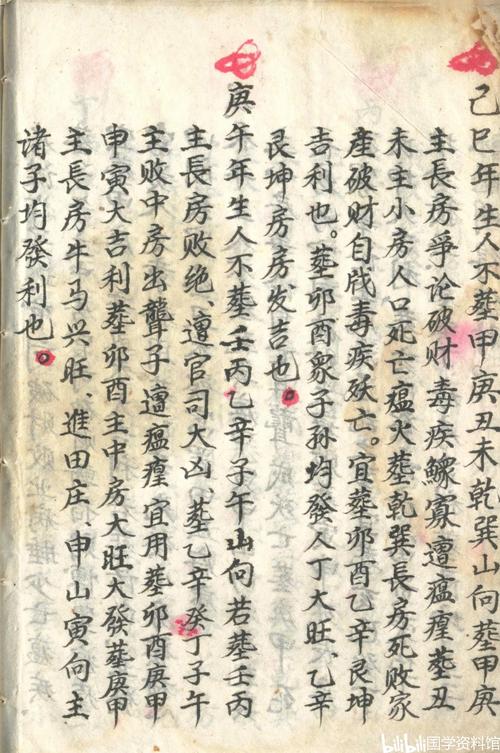 己巳年生人不塟甲庚丑未乾巽山向塟甲庚
主長房爭论破财毒疾鰥寡遭瘟瘟塟丑
未主小房人口死亡瘟火塟乾巽長房死败家
產破财自戕毒疾殀亡。宜塟卯酉乙辛艮坤
吉利也。塟卯酉衆子孙均發人丁大旺、乙辛
艮坤房房发吉也。
庚午年生人不塟壬丙乙辛子午山向若塟壬丙
主長房败绝、遭官司大凶、塟乙辛癸丁子午
主败中房出聾子遭瘟㾮宜用塟卯酉庚甲
申寅大吉利塟卯酉主中房大旺大發塟庚甲
主長房牛马兴旺、進田庄、申山寅向主
诸子均發利也。
bilibili 国学资料馆